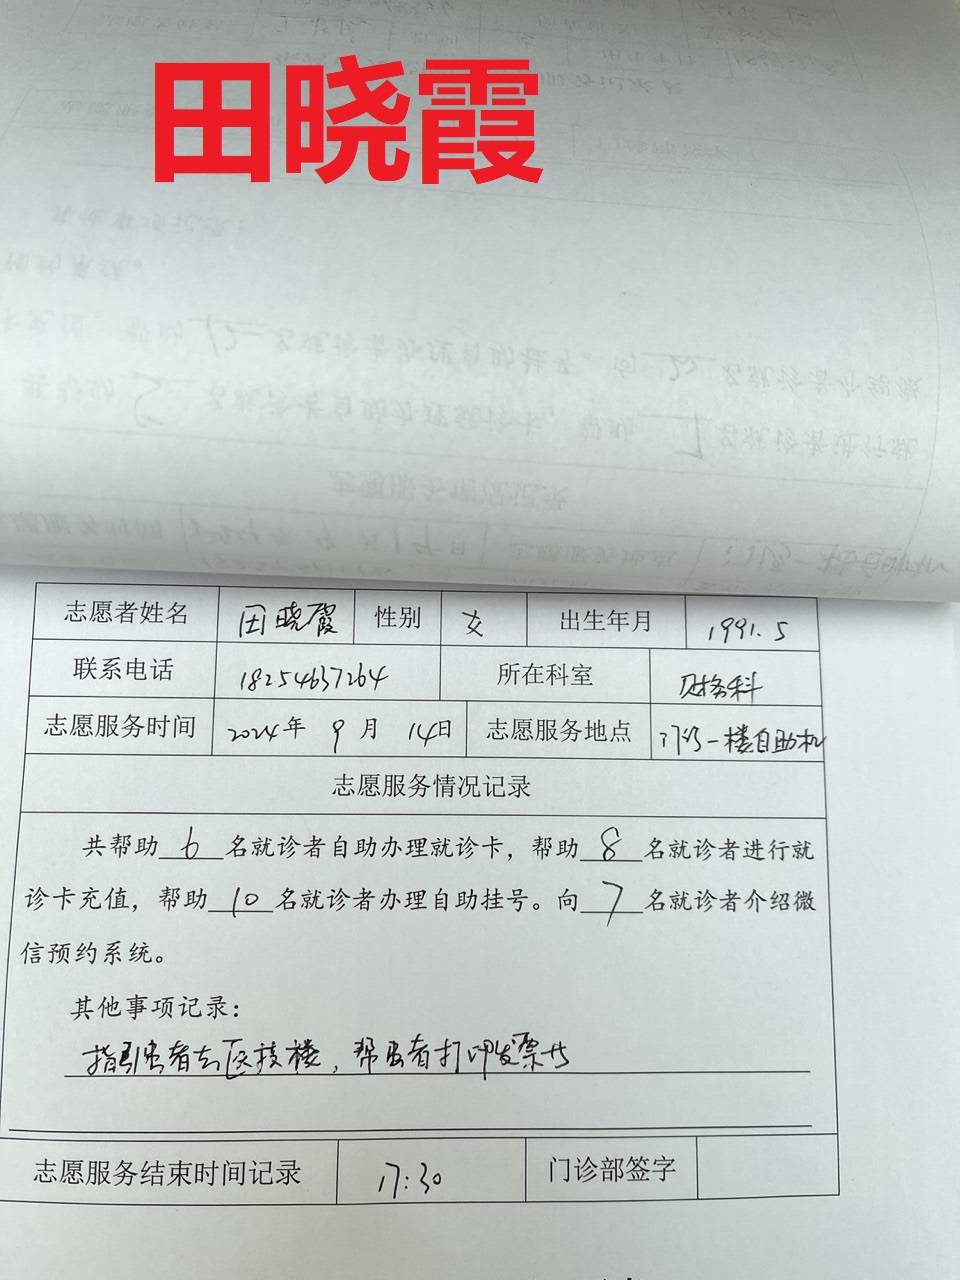 田晓霞
志愿者姓名 田晓霞 性别 女 出生年月 1991.5
联系电话 18254637264 所在科室 财务科
志愿服务时间 2024年 9 月 14日 志愿服务地点 门诊一楼自助机
志愿服务情况记录
共帮助 6 名就诊者自助办理就诊卡，帮助 8 名就诊者进行就
诊卡充值，帮助 10 名就诊者办理自助挂号。向 7 名就诊者介绍微
信预约系统。
其他事项记录：
指引患者去医技楼，帮患者打印发票等
志愿服务结束时间记录 17:30 门诊部签字